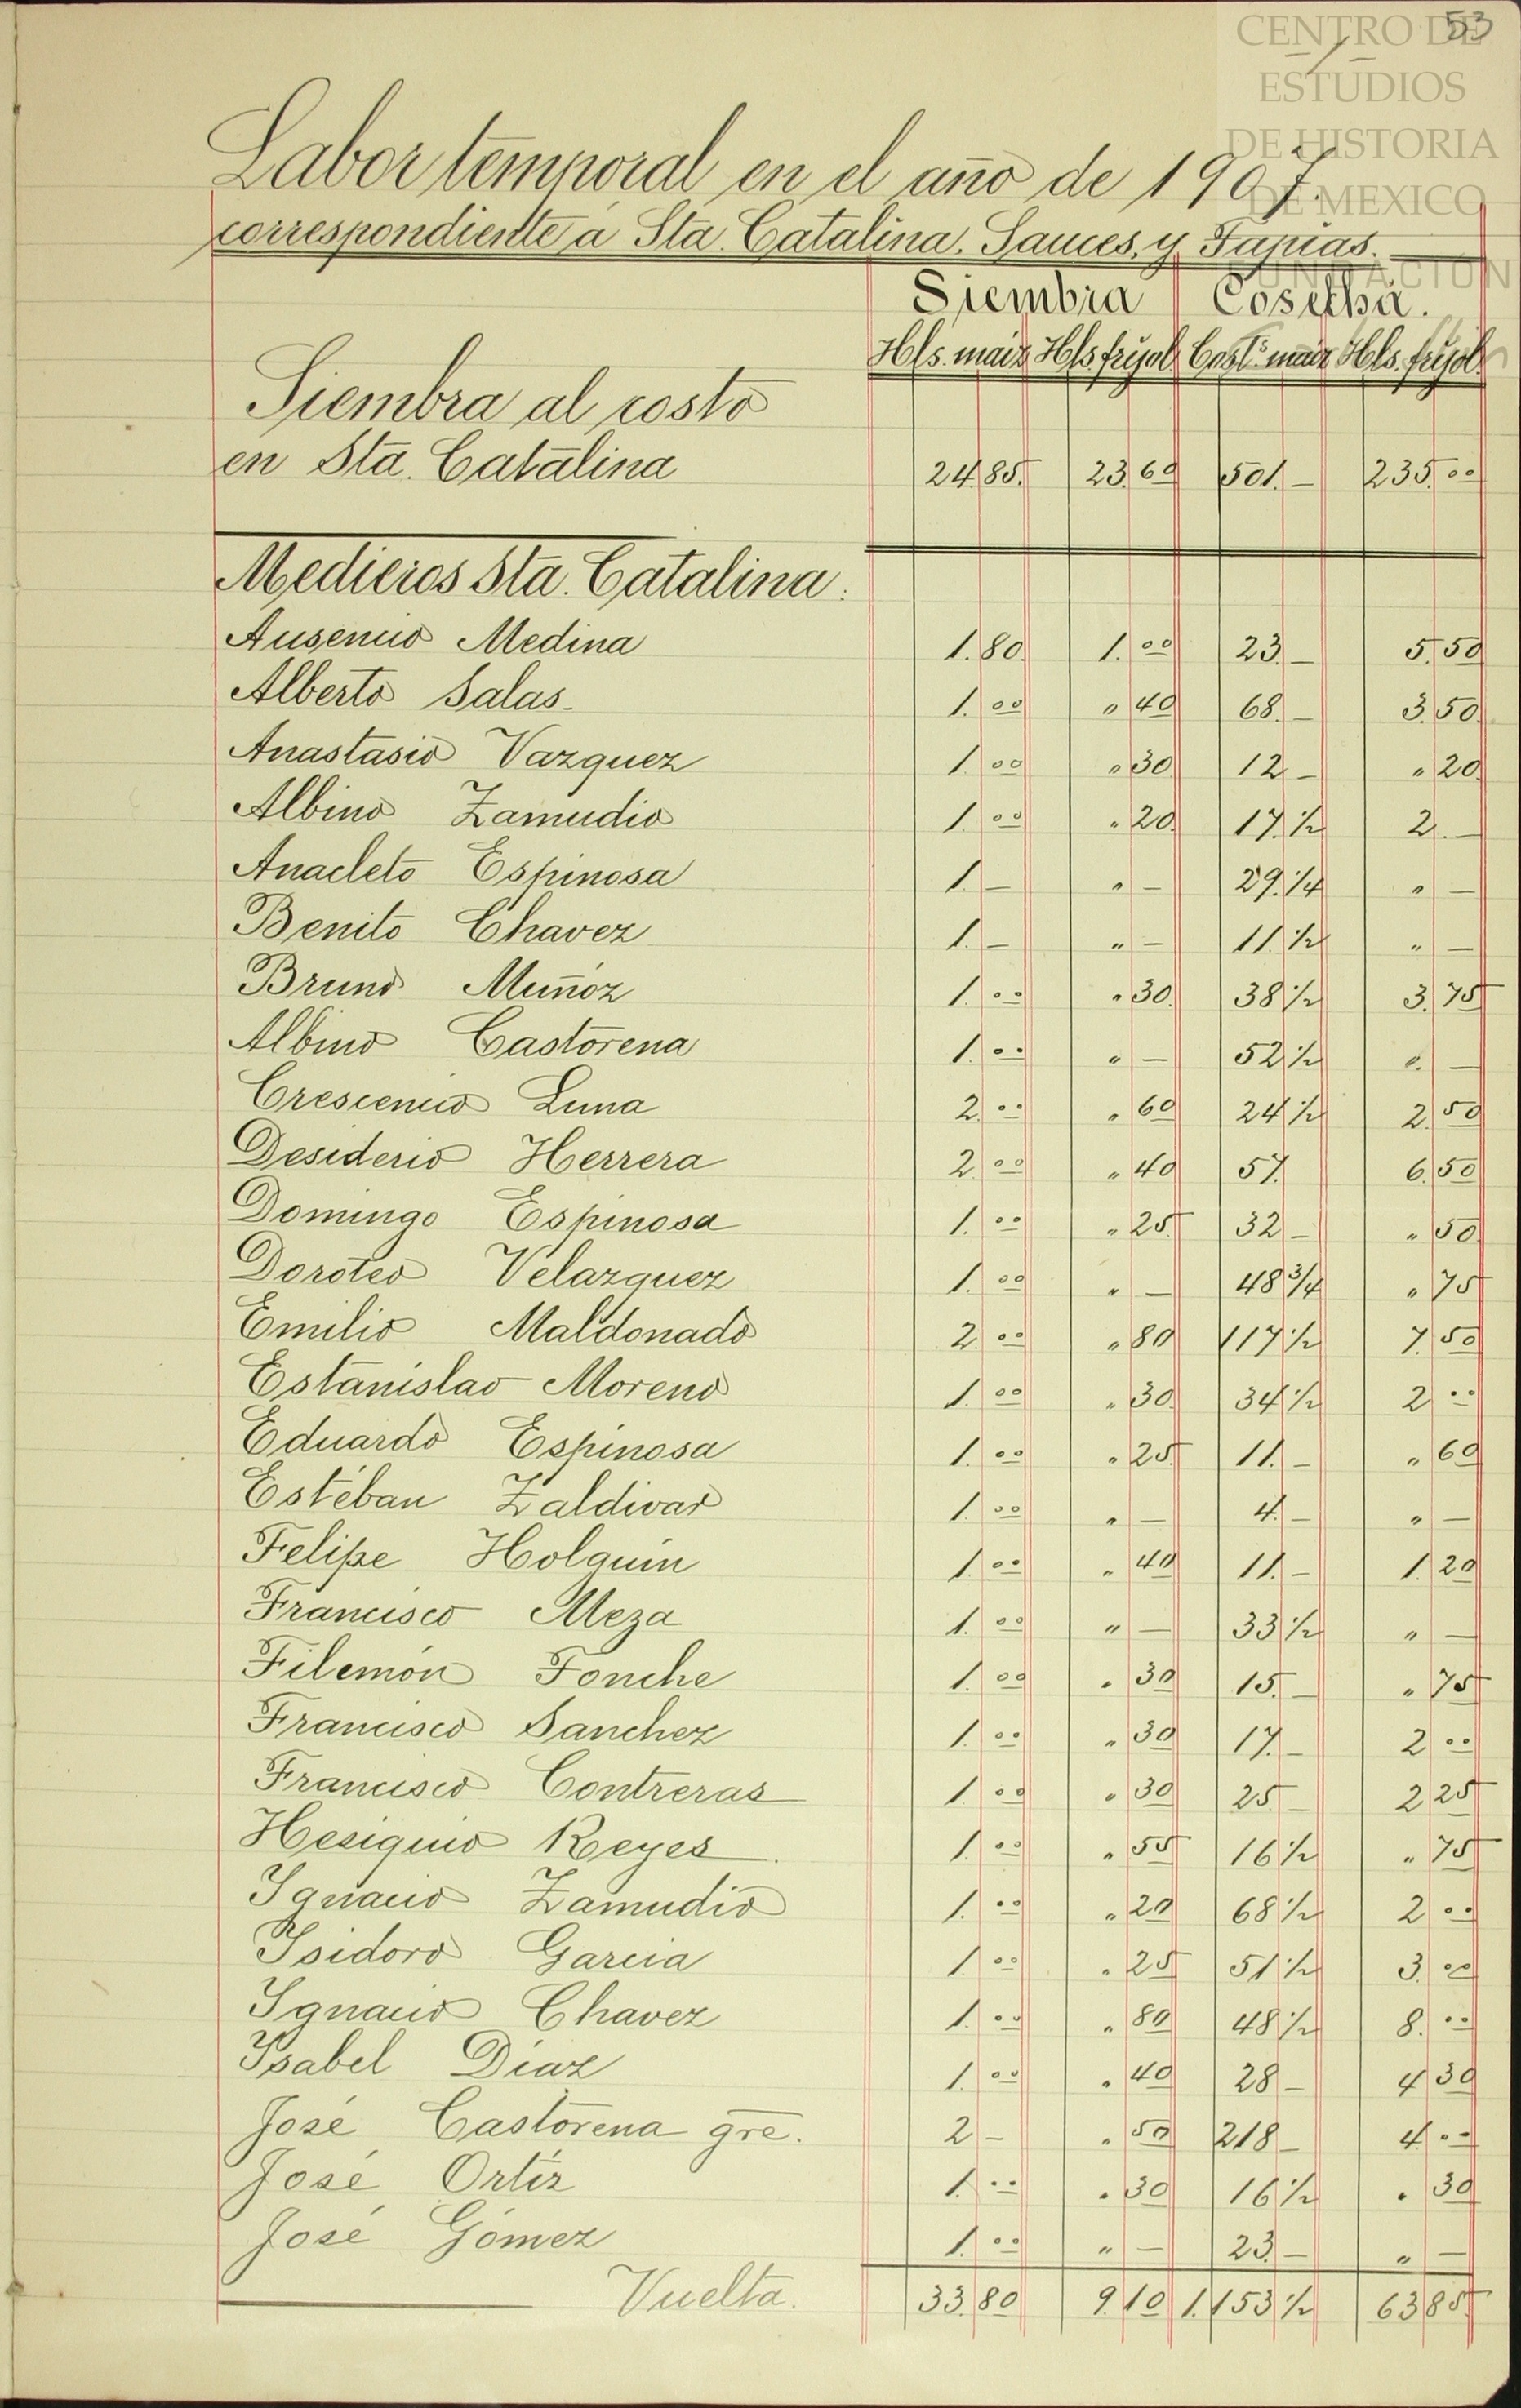 53
CENTRO DE
ESTUDIOS
DE HISTORIA
DE MEXICO
FUNDACIÓN
Labor temporal en el año de 1907.
correspondiente á Sta. Catalina, Sauces, y Tapias.
Siembra Cosecha.
Hls. maiz Hls. frijol Cost.s maiz Hls. frijol.
Siembra al costo
en Sta. Catalina 24.85. 23.60 501.— 235.00
Medieros Sta. Catalina.
Ausencio Medina 1.80. 1.00 23.— 5.50
Alberto Salas- 1.00 " 40 68.— 3.50.
Anastasio Vazquez 1 00 " 30 12 — " 20.
Albino Zamudio 1.00 " 20. 17.1/2 2.—
Anacleto Espinosa 1.— " — 29.1/4 " —
Benito Chavez 1.— " — 11.1/2 " —
Bruno Muñoz 1.00 " 30. 38 1/2 3.75
Albino Castorena 1.00 " — 52 1/2 " —
Crescencio Luna 2.00 " 60 24 1/2 2.50
Desiderio Herrera 2.00 " 40 57. 6.50
Domingo Espinosa 1.00 " 25. 32 — " 50.
Doroteo Velazquez 1.00 " — 48 3/4 " 75
Emilio Maldonado 2.00 " 80 117 1/2 7.50
Estanislao Moreno 1.00 " 30. 34 1/2 2 00
Eduardo Espinosa 1.00 " 25. 11.— " 60
Estéban Zaldivar 1.00 " — 4.— " —
Felipe Holguin 1.00 " 40 11.— 1.20
Francisco Meza 1.00 " — 33 1/2 " —
Filemón Fonche 1.00 " 30 15.— " 75
Francisco Sanchez 1.00 " 30 17.— 2 00
Francisco Contreras 1.00 " 30 25.— 2 25
Hesiquio Reyes. 1.00 " 55 16 1/2 " 75
Ignacio Zamudio 1.00 " 20 68 1/2 2 00
Isidoro Garcia 1 00 " 25 51 1/2 3.00
Ignacio Chavez 1.00 " 80 48 1/2 8.00
Isabel Díaz 1.00 " 40 28 — 4 30
José Castorena gre. 2 — " 50 218 — 4 00
José Ortíz 1.00 " 30 16 1/2 " 30
José Gómez 1.00 " — 23.— " —
Vuelta. 33.80 9.10 1.153 1/2 63 85.